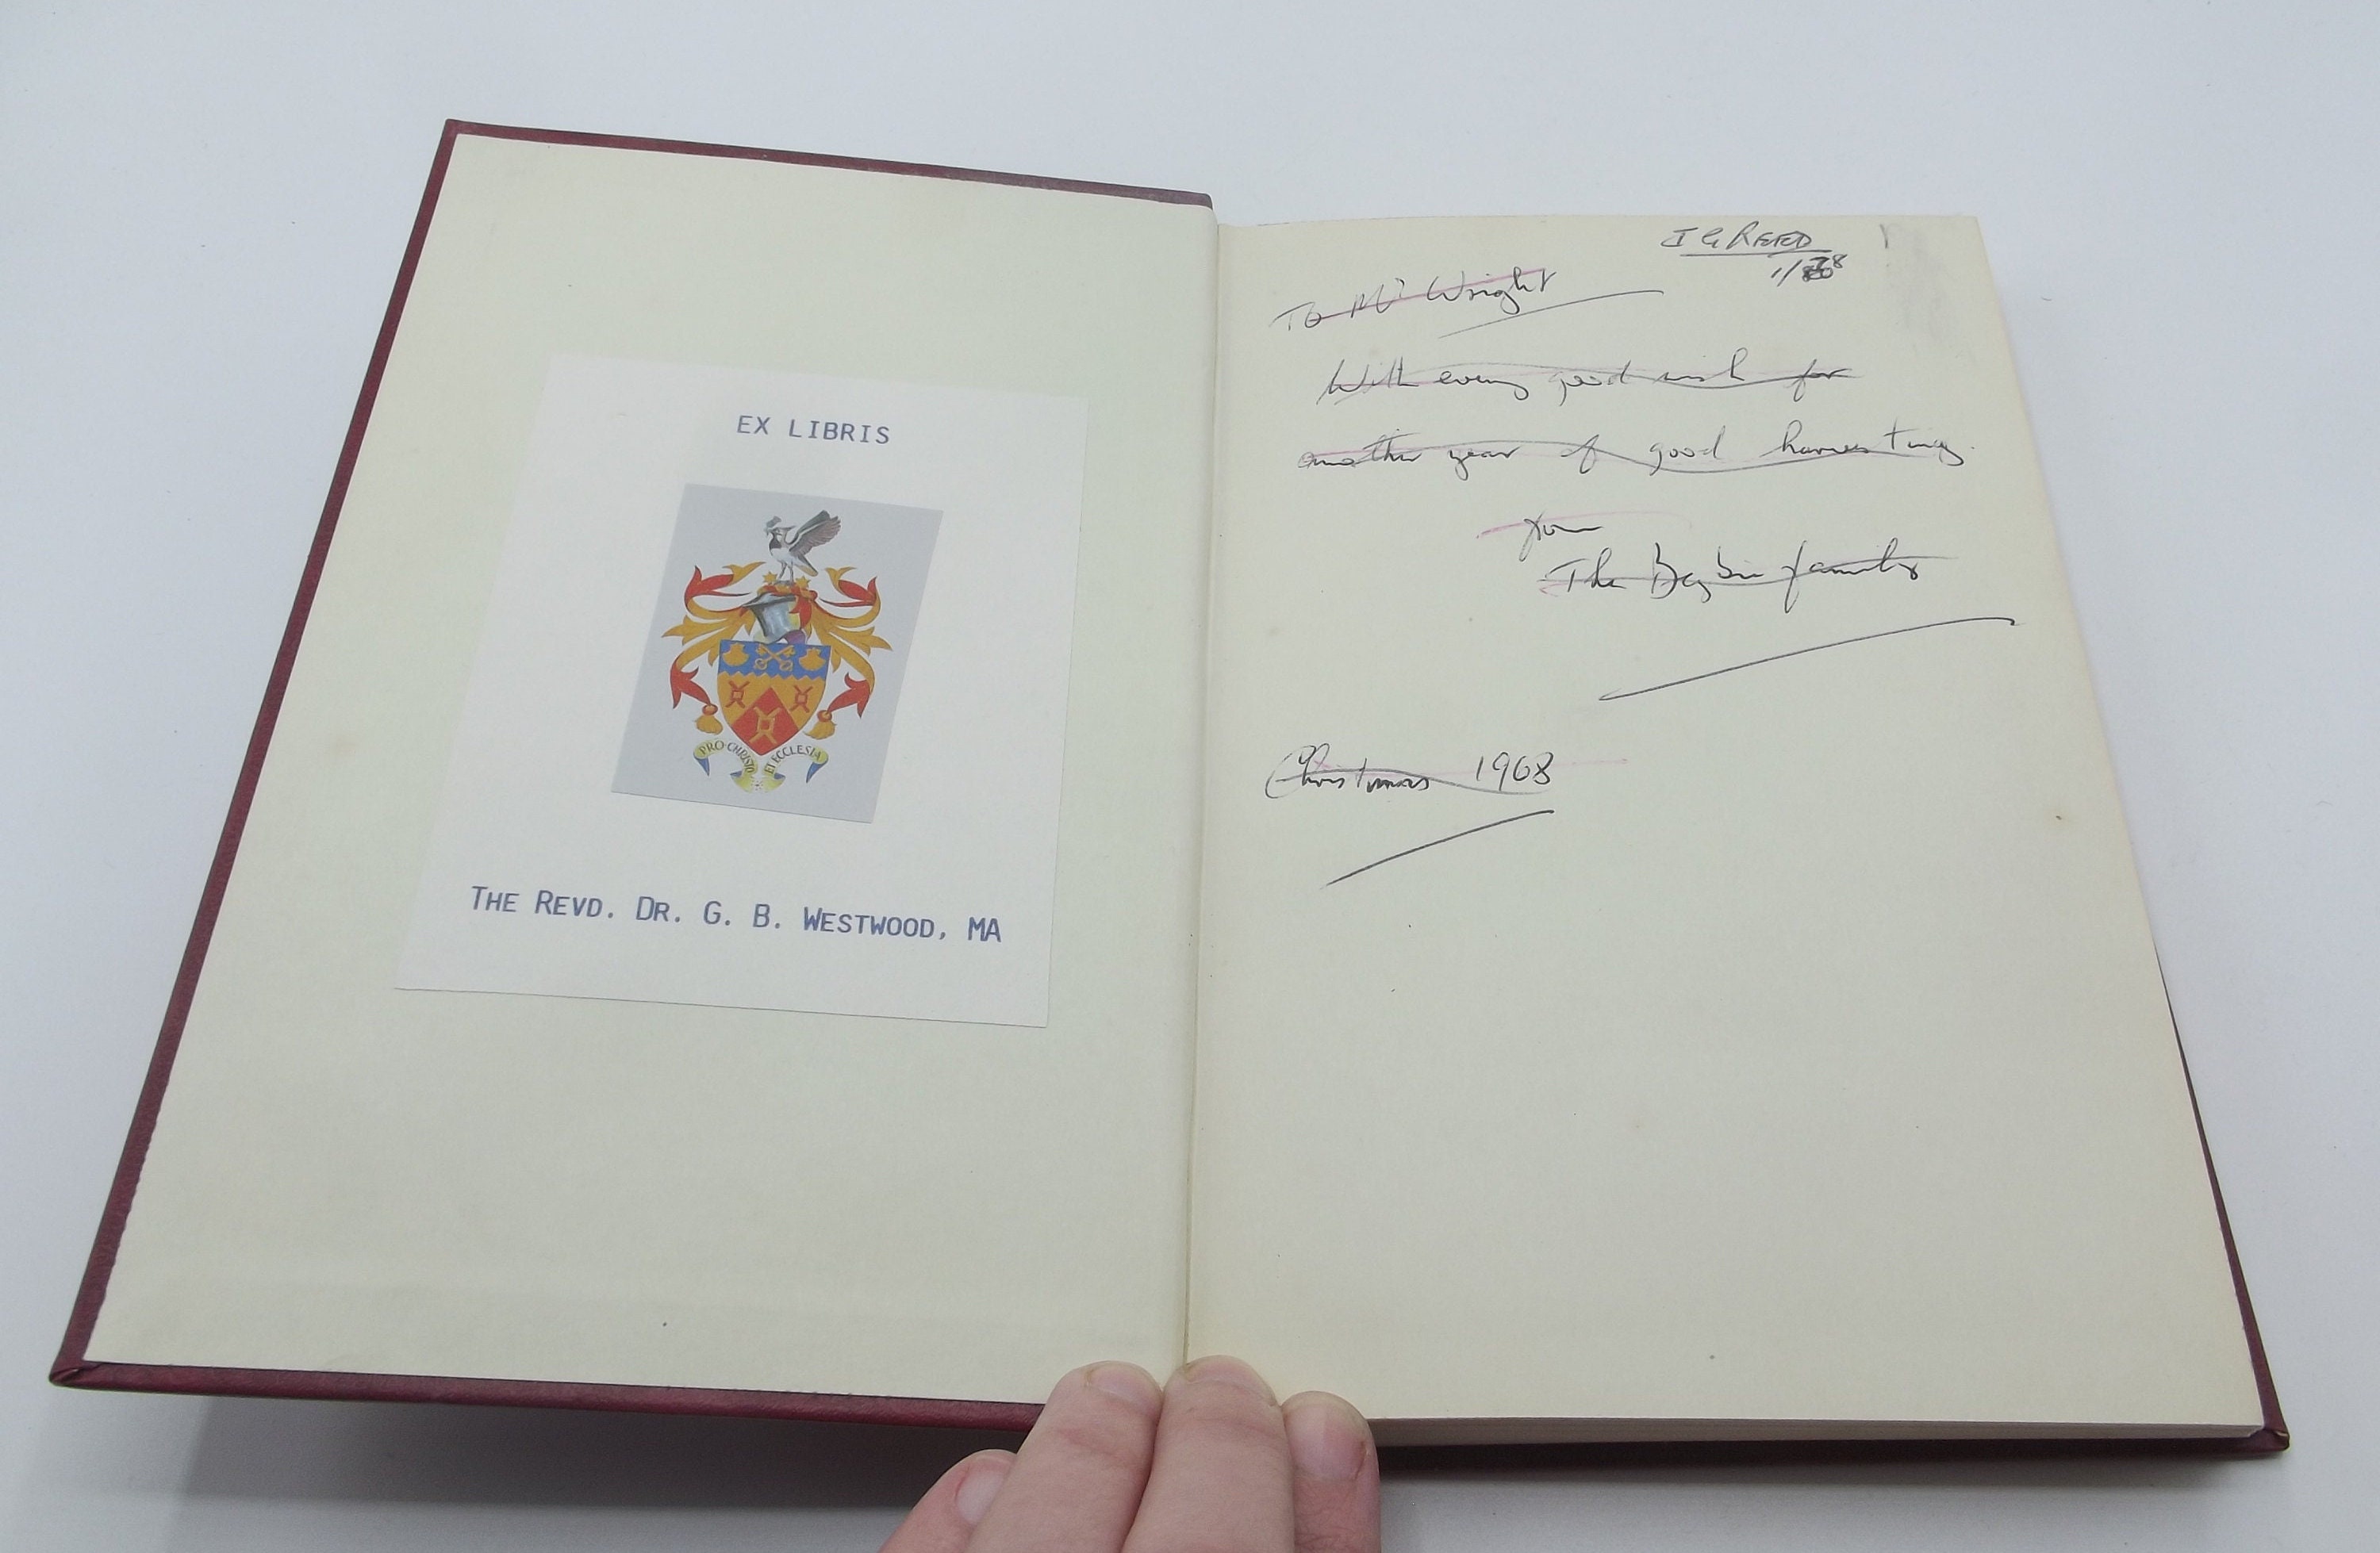 EX LIBRIS
PRO CHRISTO ET ECCLESIA
THE REVD. DR. G. B. WESTWOOD, MA
I G REED
To Mr Wright
With every good wish for
another year of good harvesting.
from
The family
Christmas 1968